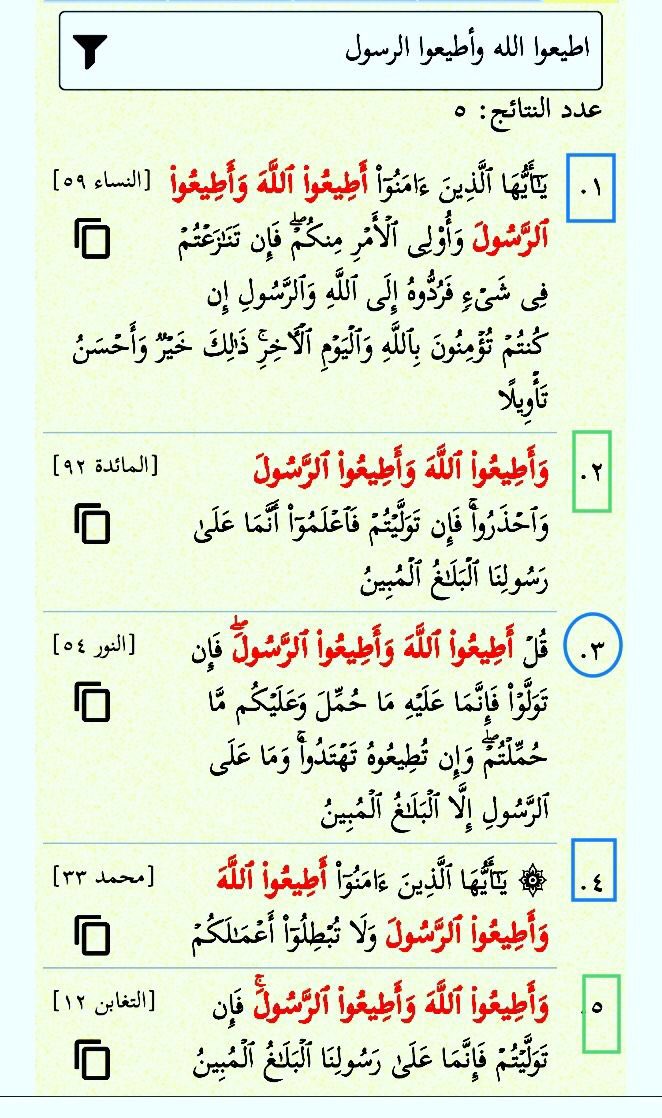 اطيعوا الله وأطيعوا الرسول
عدد النتائج: ٥
١. يَـٰٓأَيُّهَا ٱلَّذِينَ ءَامَنُوٓا۟ أَطِيعُوا۟ ٱللَّهَ وَأَطِيعُوا۟ [النساء ٥٩]
ٱلرَّسُولَ وَأُو۟لِى ٱلْأَمْرِ مِنكُمْ ۖ فَإِن تَنَـٰزَعْتُمْ
فِى شَىْءٍ فَرُدُّوهُ إِلَى ٱللَّهِ وَٱلرَّسُولِ إِن
كُنتُمْ تُؤْمِنُونَ بِٱللَّهِ وَٱلْيَوْمِ ٱلْـَٔاخِرِ ۚ ذَٰلِكَ خَيْرٌ وَأَحْسَنُ
تَأْوِيلًا
٢. وَأَطِيعُوا۟ ٱللَّهَ وَأَطِيعُوا۟ ٱلرَّسُولَ [المائدة ٩٢]
وَٱحْذَرُوا۟ ۚ فَإِن تَوَلَّيْتُمْ فَٱعْلَمُوٓا۟ أَنَّمَا عَلَىٰ
رَسُولِنَا ٱلْبَلَـٰغُ ٱلْمُبِينُ
٣. قُلْ أَطِيعُوا۟ ٱللَّهَ وَأَطِيعُوا۟ ٱلرَّسُولَ ۖ فَإِن [النور ٥٤]
تَوَلَّوْا۟ فَإِنَّمَا عَلَيْهِ مَا حُمِّلَ وَعَلَيْكُم مَّا
حُمِّلْتُمْ ۖ وَإِن تُطِيعُوهُ تَهْتَدُوا۟ ۚ وَمَا عَلَى
ٱلرَّسُولِ إِلَّا ٱلْبَلَـٰغُ ٱلْمُبِينُ
٤. ۞ يَـٰٓأَيُّهَا ٱلَّذِينَ ءَامَنُوٓا۟ أَطِيعُوا۟ ٱللَّهَ [محمد ٣٣]
وَأَطِيعُوا۟ ٱلرَّسُولَ وَلَا تُبْطِلُوٓا۟ أَعْمَـٰلَكُمْ
٥. وَأَطِيعُوا۟ ٱللَّهَ وَأَطِيعُوا۟ ٱلرَّسُولَ ۚ فَإِن [التغابن ١٢]
تَوَلَّيْتُمْ فَإِنَّمَا عَلَىٰ رَسُولِنَا ٱلْبَلَـٰغُ ٱلْمُبِينُ